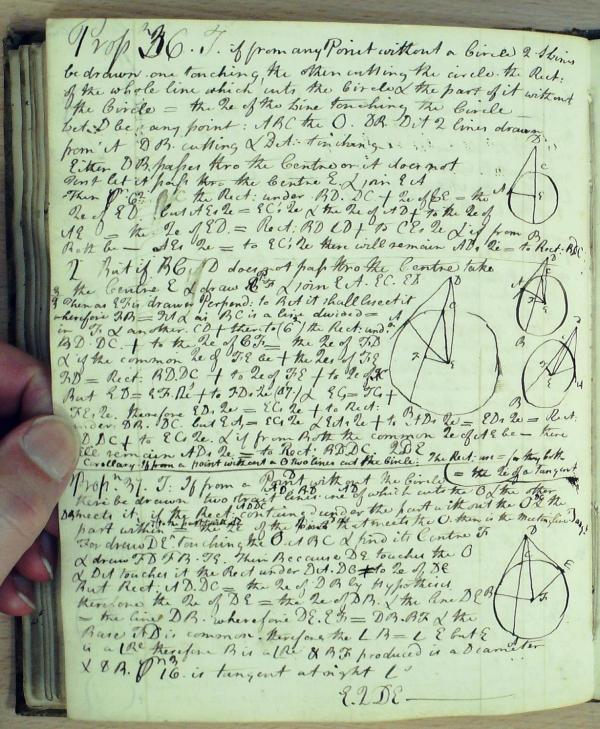 Prop 36. T. if from any Point without a Circle 2 Lines
be drawn one touching, the other cutting the circle the Rect:
of the whole line which cuts the Circle & the part of it without
the Circle = the 2e of the Line touching the Circle
Let D be any point: ABC the O. DB Dit 2 lines drawn
from it DB. cutting & DA. touching
Either DB passes thro the Centre or it does not
First let it pass thro the Centre E. & join EA
Then the Rect: under BD. DC + 2e of CE = the
2e of ED. but AEs 2e = EC's 2e & the 2e of AD + to the 2e of
AE = the 2e of ED = Rect: BD CD + to CEs 2e & if from
Both be — AEs 2e = to EC's 2e there will remain ADs 2e = to Rect: BDC
2 But if BC D does not pass thro the Centre take
the Centre E & draw EF & join EA. EC. ED
Then as EF is drawn Perpend: to BC it shall bisect it
wherefore FB = FC & as BC is a line divided =
in F & another CD + ther to (6) the Rect: und:
BD. DC + to the 2e of CF = the 2e of FD
& if the common 2e of FE be + the 2es of FE
FD = Rect: BD.DC + to 2e of FE + to 2e of FC
But ED = EF. 2e + to FDs 2e (47) & EC = FC +
FEs 2e. therefore EDs 2e = ECs 2e + to Rect:
under DB. DC. but EA = ECs 2e & EAs 2e + to ADs 2e = EDs 2e = Rect:
BD.DC + to ECs 2e. & if from Both the common 2e of AE be — there
will remain ADs 2e = to Rect: BD.DC QED
Corollary: If from a point without a O two lines cut the Circle: The Rect: are = for they both
= the 2e of a Tangent
Prop n 37. T: If from a Point without the Circle
there be drawn two strait lines one of which cuts the O & the other
meets it, if the Rect. contained under the part without the O & the
part within = the 2e of the line that meets the O. then is the meeting line Tang:
For draw DE touching the O. ABC & find its Centre F
& draw FD FB. FE. Then Because DE touches the O
& DCA touches it the Rect under DA. DC = to 2e of DE
But Rect: AD.DC = the 2e of DB by Hypothisis
therefore the 2e of DE = the 2e of DB. & the line DE
= the line DB. wherefore DE. EF = DB. BF & the
Base FD is common. therefore the L B = L E but E
is a LRe therefore B is a LRe & BF produced is a Diameter
& DB. 16. is tangent at right Ls
Q.E.D.